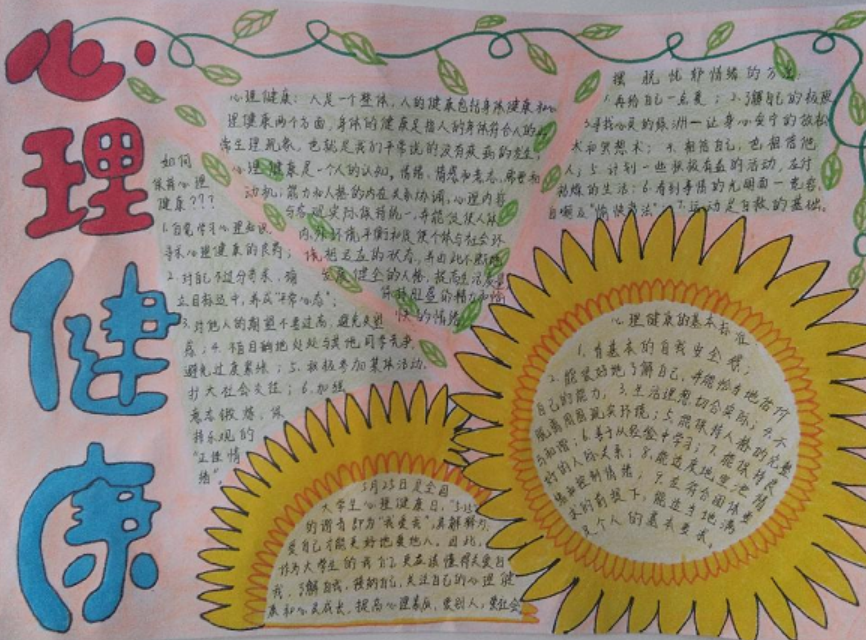 心理健康
心理健康：人是一个整体，人的健康包括身体健康和心
理健康两个方面，身体的健康是指人的身体符合人的
常生理现象，也就是我们平常说的没有疾病的发生；
心理健康是一个人的认知，情绪，情感和意志，需要和
动机；能力和人格的内在关系协调，心理内容
与客观实际保持统一，并能促使人体
内，外环境平衡和促使个体与社会环
境相适应的状态，并由此不断地
发展健全的人格，提高生活质量
保持旺盛的精力和愉
快的情绪
摆脱忧郁情绪的方法
1.再给自己一点爱；2.了解自己的极限
3.寻找心灵的绿洲—让身心安宁的放松
术和冥想术；4.相信自己，也相信他
人；5.计划一些积极有益的活动，应付
枯燥的生活；6.看到事情的光明面—笑容，
自嘲及“愉快疗法”；7.运动是自救的基础。
如何
保持心理
健康???
1.自觉学习心理知识，
寻求心理健康的良药；
2.对自己不过分苛求，确
立目标适中，养成“平常心态”；
3.对他人的期望不要过高，避免失望
感；4.不盲目地处处与其他同学竞争，
避免过度紧张；5.积极参加集体活动，
扩大社会交往；6.加强
意志锻炼，保
持乐观的
“正性情
绪”。
5月25日是全国
大学生心理健康日，“5.25”
的谐音即为“我爱我”，其解释为，
爱自己才能更好地爱他人。因此，
作为大学生的我们，更应该懂得关爱自
我，了解自我，接纳自己，关注自己的心理健
康和心灵成长，提高心理素质，爱别人，爱社会
心理健康的基本标准
1.有基本的自我安全感；
2.能装好地了解自己，并能恰当地估价
自己的能力；3.生活理想切合实际；4.不
脱离周围现实环境；5.能保持人格的完整
与和谐；6.善于从经验中学习；7.能保持良
好的人际关系；8.能适度地宣泄情
绪和控制情绪；9.在符合团体要
求的前提下，能适当地满
足个人的基本要求。